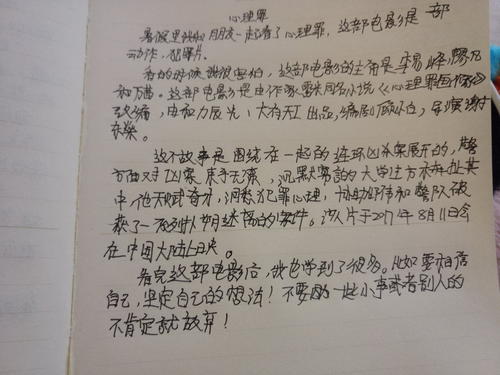 心理罪
暑假里我和朋友一起看了心理罪，这部电影是一部
动作，犯罪片。
看的时候我很害怕，这部电影的主角是李易峰，廖凡
和万茜。这部电影是由作家雷米同名小说《心理罪画像》
改编，由和力辰光、大有天工出品，编剧顾小白，导演谢
东燊。
这个故事是围绕在一起的连环凶杀案展开的，警
方面对凶案束手无策，沉默寡言的大学生方木牵扯其
中他天赋奇才，洞悉犯罪心理，协助邰伟和警队破
获了一系列扑朔迷离的案件。该片于2017年8月11日会
在中国大陆上映。
看完这部电影后，我也学到了很多。比如要相信
自己，坚定自己的想法！不要因一些小事或者别人的
不肯定就放弃！